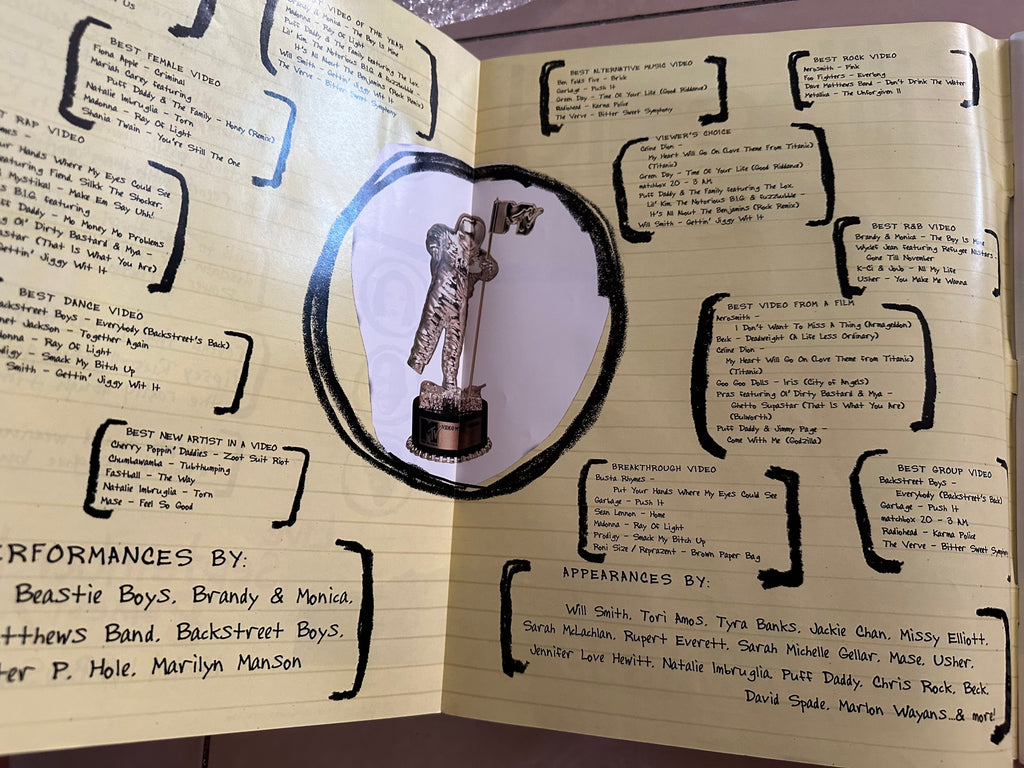 Us
VIDEO OF THE YEAR
Brandy & Monica - The Boy Is Mine
Madonna - Ray Of Light
Puff Daddy & The Family featuring The Lox,
Lil' Kim, The Notorious B.I.G. & fuzzbubble -
It's All About The Benjamins (Rock Remix)
Will Smith - Gettin' Jiggy Wit It
The Verve - Bitter Sweet Symphony
BEST FEMALE VIDEO
Fiona Apple - Criminal
Mariah Carey featuring
Puff Daddy & The Family - Honey (Remix)
Natalie Imbruglia - Torn
Madonna - Ray Of Light
Shania Twain - You're Still The One
T RAP VIDEO
mes -
ur Hands Where My Eyes Could See
eaturing Fiend, Silkk The Shocker,
Mystikal - Make Em Say Uhh!
s B.I.G. featuring
ff Daddy - Mo Money Mo Problems
ng Ol' Dirty Bastard & Mya -
astar (That Is What You Are)
ettin' Jiggy Wit It
BEST DANCE VIDEO
ackstreet Boys - Everybody (Backstreet's Back)
net Jackson - Together Again
donna - Ray Of Light
odigy - Smack My Bitch Up
Smith - Gettin' Jiggy Wit It
BEST NEW ARTIST IN A VIDEO
Cherry Poppin' Daddies - Zoot Suit Riot
Chumbawamba - Tubthumping
Fastball - The Way
Natalie Imbruglia - Torn
Mase - Feel So Good
ERFORMANCES BY:
Beastie Boys, Brandy & Monica,
tthews Band, Backstreet Boys,
ter P, Hole, Marilyn Manson
MTV
BEST ALTERNATIVE MUSIC VIDEO
Ben Folds Five - Brick
Garbage - Push It
Green Day - Time Of Your Life (Good Riddance)
Radiohead - Karma Police
The Verve - Bitter Sweet Symphony
BEST ROCK VIDEO
Aerosmith - Pink
Foo Fighters - Everlong
Dave Matthews Band - Don't Drink The Water
Metallica - The Unforgiven II
VIEWER'S CHOICE
Celine Dion -
My Heart Will Go On (Love Theme From Titanic)
(Titanic)
Green Day - Time Of Your Life (Good Riddance)
matchbox 20 - 3 AM
Puff Daddy & The Family featuring The Lox,
Lil' Kim, The Notorious B.I.G. & fuzzbubble -
It's All About The Benjamins (Rock Remix)
Will Smith - Gettin' Jiggy Wit It
BEST R&B VIDEO
Brandy & Monica - The Boy Is Mine
Wyclef Jean featuring Refugee Allstars -
Gone Till November
K-Ci & JoJo - All My Life
Usher - You Make Me Wanna
BEST VIDEO FROM A FILM
Aerosmith -
I Don't Want To Miss A Thing (Armageddon)
Beck - Deadweight (A Life Less Ordinary)
Celine Dion -
My Heart Will Go On (Love Theme From Titanic)
(Titanic)
Goo Goo Dolls - Iris (City of Angels)
Pras featuring Ol' Dirty Bastard & Mya -
Ghetto Supastar (That Is What You Are)
(Bulworth)
Puff Daddy & Jimmy Page -
Come With Me (Godzilla)
BREAKTHROUGH VIDEO
Busta Rhymes -
Put Your Hands Where My Eyes Could See
Garbage - Push It
Sean Lennon - Home
Madonna - Ray Of Light
Prodigy - Smack My Bitch Up
Roni Size / Reprazent - Brown Paper Bag
BEST GROUP VIDEO
Backstreet Boys -
Everybody (Backstreet's Back)
Garbage - Push It
matchbox 20 - 3 AM
Radiohead - Karma Police
The Verve - Bitter Sweet Symphon
APPEARANCES BY:
Will Smith, Tori Amos, Tyra Banks, Jackie Chan, Missy Elliott,
Sarah McLachlan, Rupert Everett, Sarah Michelle Gellar, Mase, Usher,
Jennifer Love Hewitt, Natalie Imbruglia, Puff Daddy, Chris Rock, Beck,
David Spade, Marlon Wayans...& more!